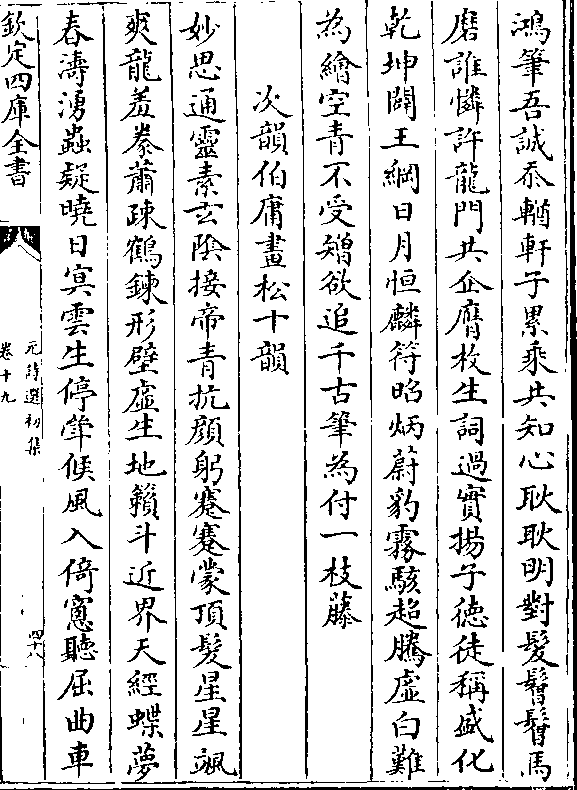 鴻筆吾誠忝輶軒子累乘共知心耿耿明對髮鬙鬙馬
磨誰憐許龍門共企膺枚生詞過實揚子徳徒稱盛化
乾坤闢王綱日月恒麟符昭炳蔚豹霧駭超騰虛白難
為繪空青不受矰欲追千古筆為付一枝藤
次韻伯庸畫松十韻
妙思通靈素玄隂接帝青抗顔躬蹇蹇蒙頂髮星星颯
爽龍羞豢蕭疎鶴鍊形壁虛生地籟斗近界天經蝶夢
春濤湧蟲疑曉日㝠雲生停犖候風入倚窻聽屈曲車
欽定四庫全書
元詩選初集
卷十九
四十八